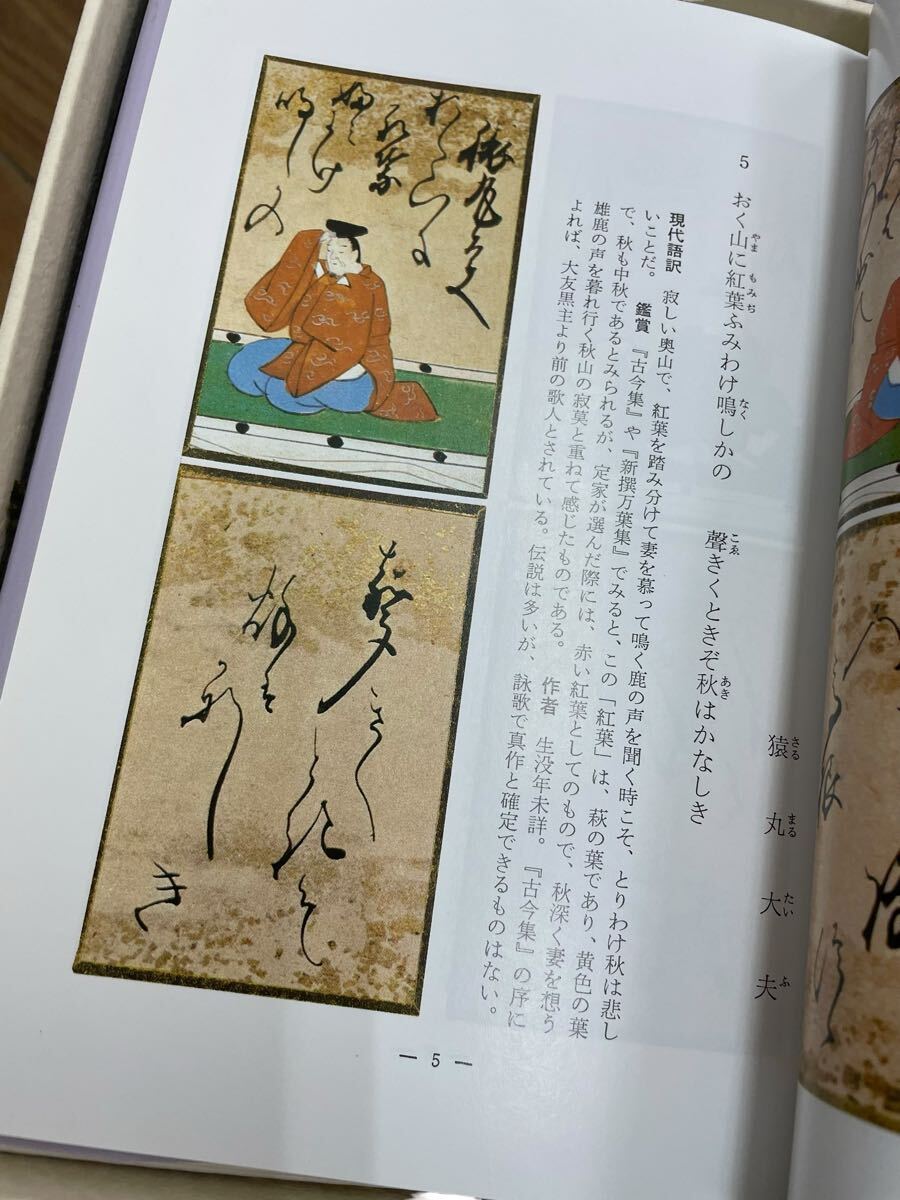 5
おく山に紅葉ふみわけ鳴しかの　聲きくときぞ秋はかなしき
やま
もみぢ
なく
こゑ
あき
猿丸大夫
さる
まる
たい
ふ
現代語訳　寂しい奥山で、紅葉を踏み分けて妻を慕って鳴く鹿の声を聞く時こそ、とりわけ秋は悲し
いことだ。　鑑賞　『古今集』や『新撰万葉集』でみると、この「紅葉」は、萩の葉であり、黄色の葉
で、秋も中秋であるとみられるが、定家が選んだ際には、赤い紅葉としてのもので、秋深く妻を想う
雄鹿の声を暮れ行く秋山の寂莫と重ねて感じたものである。　作者　生没年未詳。『古今集』の序に
よれば、大友黒主より前の歌人とされている。伝説は多いが、詠歌で真作と確定できるものはない。
猿丸大夫
— 5 —